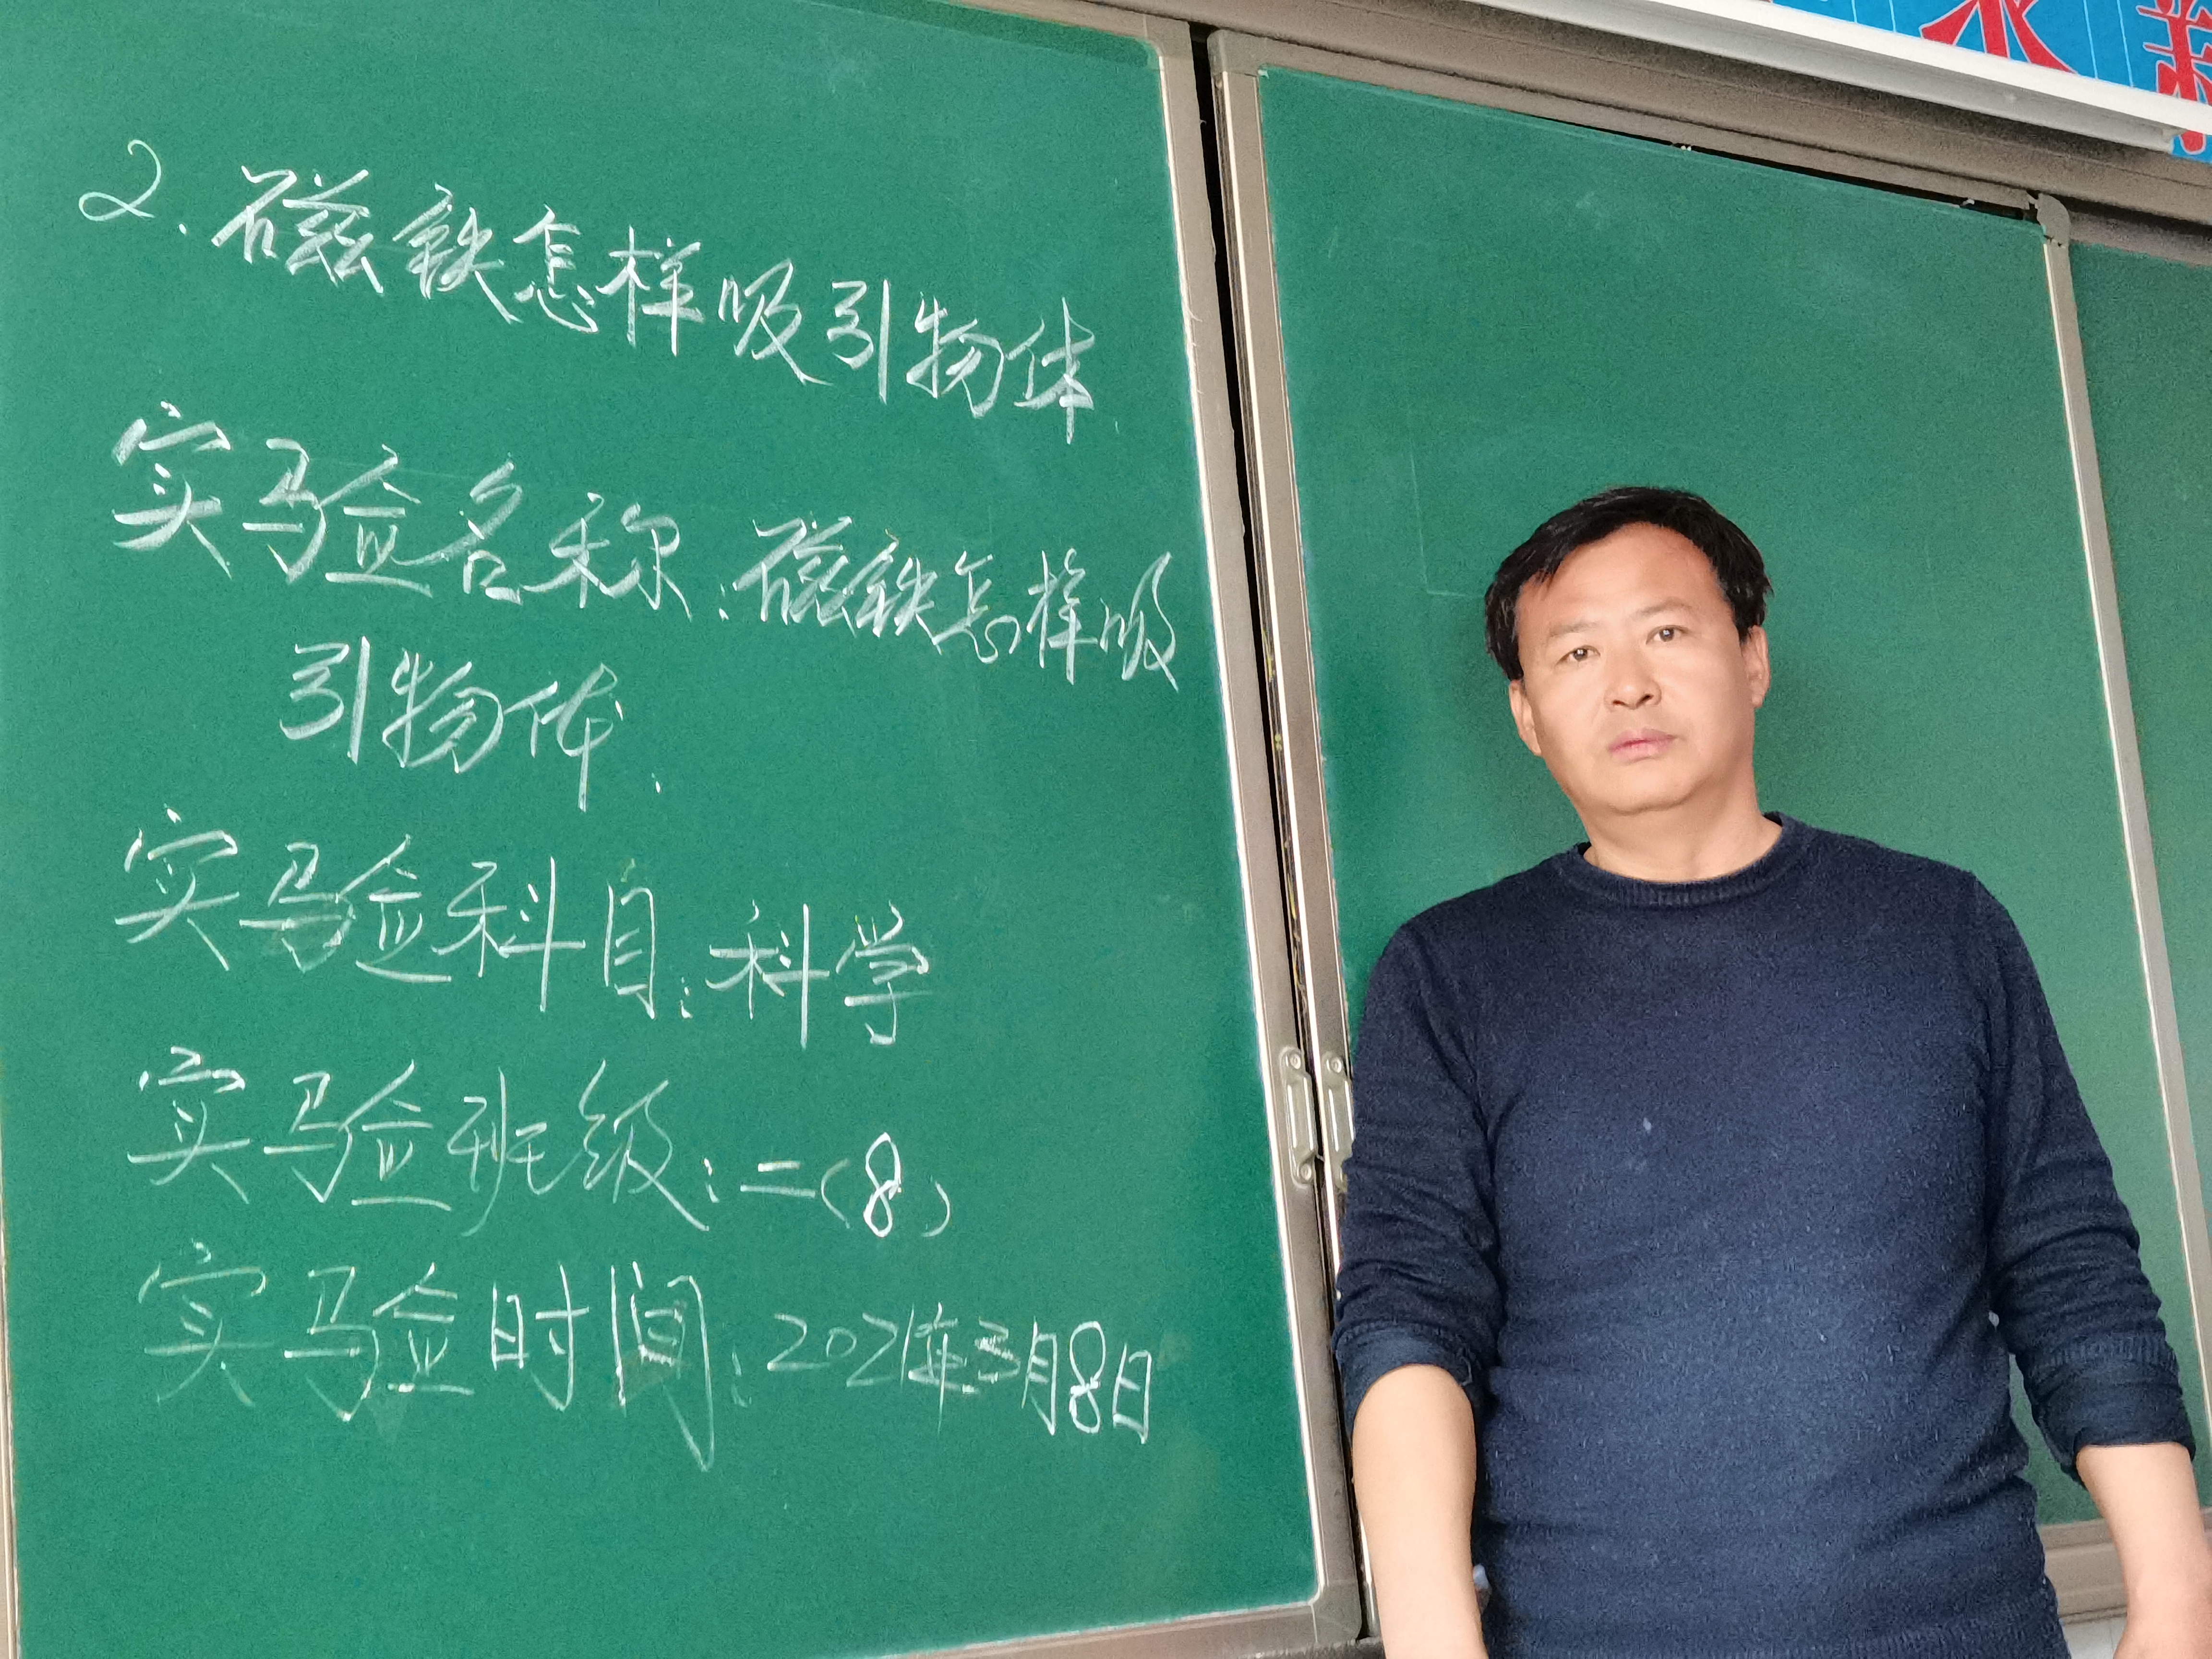 2.磁铁怎样吸引物体
实验名称:磁铁怎样吸
引物体.
实验科目:科学
实验班级:二(8)
实验时间:2021年3月8日